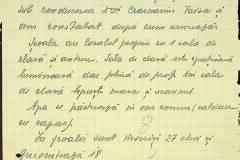 sub conducerea D-nei Crasnaniuc Taisa și
am constatat după cum urmează:
Școala are localul propriu cu 1 sală de
clasă și antreu. Sala de clasă este spațioasă
luminoasă dar plină de praf. În sala de
clasă lipsește masa și scaunul.
Apa se păstrează în vas comun (căldare
cu capac)
La școală sunt înscriși 27 elevi și
frecventează 18